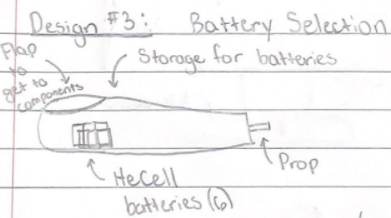 Design #3: Battery Selection
Flap to get to components
Storage for batteries
Prop
HeCell batteries (6)